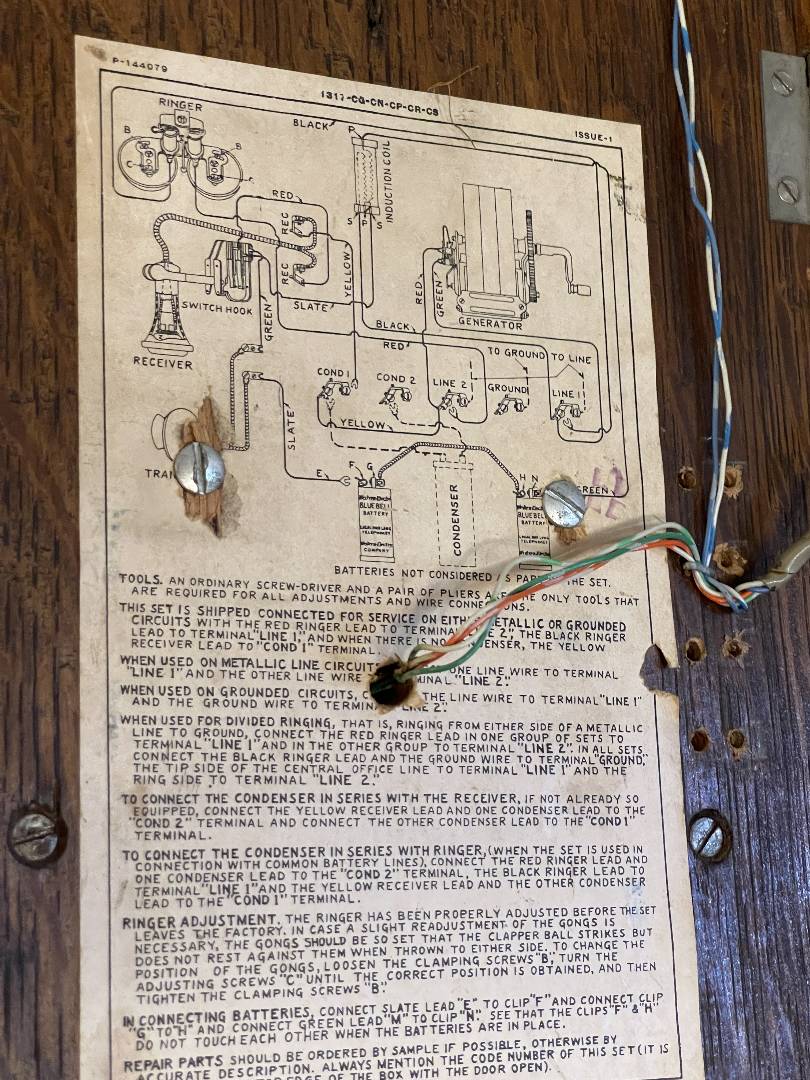 P-144079
1317-CG-CN-CP-CR-CS
ISSUE-1
RINGER
BLACK
P
B
B
C
C
INDUCTION COIL
RED
REC
S P S
REC
YELLOW
RED
GREEN
SWITCH HOOK
SLATE
GREEN
GENERATOR
BLACK
RED
RECEIVER
TO GROUND TO LINE
COND 1
COND 2
LINE 2
GROUND
LINE 1
SLATE
YELLOW
E
F G
H N
GREEN
CONDENSER
BLUE BELL
BATTERY
LOCAL BATTERY
TELEPHONES
COMPANY
BLUE BELL
BATTERY
BATTERIES NOT CONSIDERED THE SET.
TOOLS. AN ORDINARY SCREW-DRIVER AND A PAIR OF PLIERS ARE THE ONLY TOOLS THAT
ARE REQUIRED FOR ALL ADJUSTMENTS AND WIRE CONNECTIONS.
THIS SET IS SHIPPED CONNECTED FOR SERVICE ON EITHER METALLIC OR GROUNDED
CIRCUITS WITH THE RED RINGER LEAD TO TERMINAL "LINE 2", THE BLACK RINGER
LEAD TO TERMINAL "LINE 1", AND WHEN THERE IS NO CONDENSER, THE YELLOW
RECEIVER LEAD TO "COND 1" TERMINAL.
WHEN USED ON METALLIC LINE CIRCUITS ONE LINE WIRE TO TERMINAL
"LINE 1" AND THE OTHER LINE WIRE TERMINAL "LINE 2".
WHEN USED ON GROUNDED CIRCUITS, THE LINE WIRE TO TERMINAL "LINE 1"
AND THE GROUND WIRE TO TERMINAL "LINE 2".
WHEN USED FOR DIVIDED RINGING, THAT IS, RINGING FROM EITHER SIDE OF A METALLIC
LINE TO GROUND, CONNECT THE RED RINGER LEAD IN ONE GROUP OF SETS TO
TERMINAL "LINE 1" AND IN THE OTHER GROUP TO TERMINAL "LINE 2". IN ALL SETS
CONNECT THE BLACK RINGER LEAD AND THE GROUND WIRE TO TERMINAL "GROUND,"
THE TIP SIDE OF THE CENTRAL OFFICE LINE TO TERMINAL "LINE 1" AND THE
RING SIDE TO TERMINAL "LINE 2."
TO CONNECT THE CONDENSER IN SERIES WITH THE RECEIVER, IF NOT ALREADY SO
EQUIPPED, CONNECT THE YELLOW RECEIVER LEAD AND ONE CONDENSER LEAD TO THE
"COND 2" TERMINAL AND CONNECT THE OTHER CONDENSER LEAD TO THE "COND 1"
TERMINAL.
TO CONNECT THE CONDENSER IN SERIES WITH RINGER, (WHEN THE SET IS USED IN
CONNECTION WITH COMMON BATTERY LINES), CONNECT THE RED RINGER LEAD AND
ONE CONDENSER LEAD TO THE "COND 2" TERMINAL, THE BLACK RINGER LEAD TO
TERMINAL "LINE 1" AND THE YELLOW RECEIVER LEAD AND THE OTHER CONDENSER
LEAD TO THE "COND 1" TERMINAL.
RINGER ADJUSTMENT. THE RINGER HAS BEEN PROPERLY ADJUSTED BEFORE THE SET
LEAVES THE FACTORY. IN CASE A SLIGHT READJUSTMENT OF THE GONGS IS
NECESSARY, THE GONGS SHOULD BE SO SET THAT THE CLAPPER BALL STRIKES BUT
DOES NOT REST AGAINST THEM WHEN THROWN TO EITHER SIDE. TO CHANGE THE
POSITION OF THE GONGS, LOOSEN THE CLAMPING SCREWS "B", TURN THE
ADJUSTING SCREWS "C" UNTIL THE CORRECT POSITION IS OBTAINED, AND THEN
TIGHTEN THE CLAMPING SCREWS "B".
IN CONNECTING BATTERIES, CONNECT SLATE LEAD "E" TO CLIP "F" AND CONNECT CLIP
"G" TO "H" AND CONNECT GREEN LEAD "M" TO CLIP "N". SEE THAT THE CLIPS "F" & "H"
DO NOT TOUCH EACH OTHER WHEN THE BATTERIES ARE IN PLACE.
REPAIR PARTS SHOULD BE ORDERED BY SAMPLE IF POSSIBLE, OTHERWISE BY
ACCURATE DESCRIPTION. ALWAYS MENTION THE CODE NUMBER OF THIS SET (IT IS
EDGE OF THE BOX WITH THE DOOR OPEN).